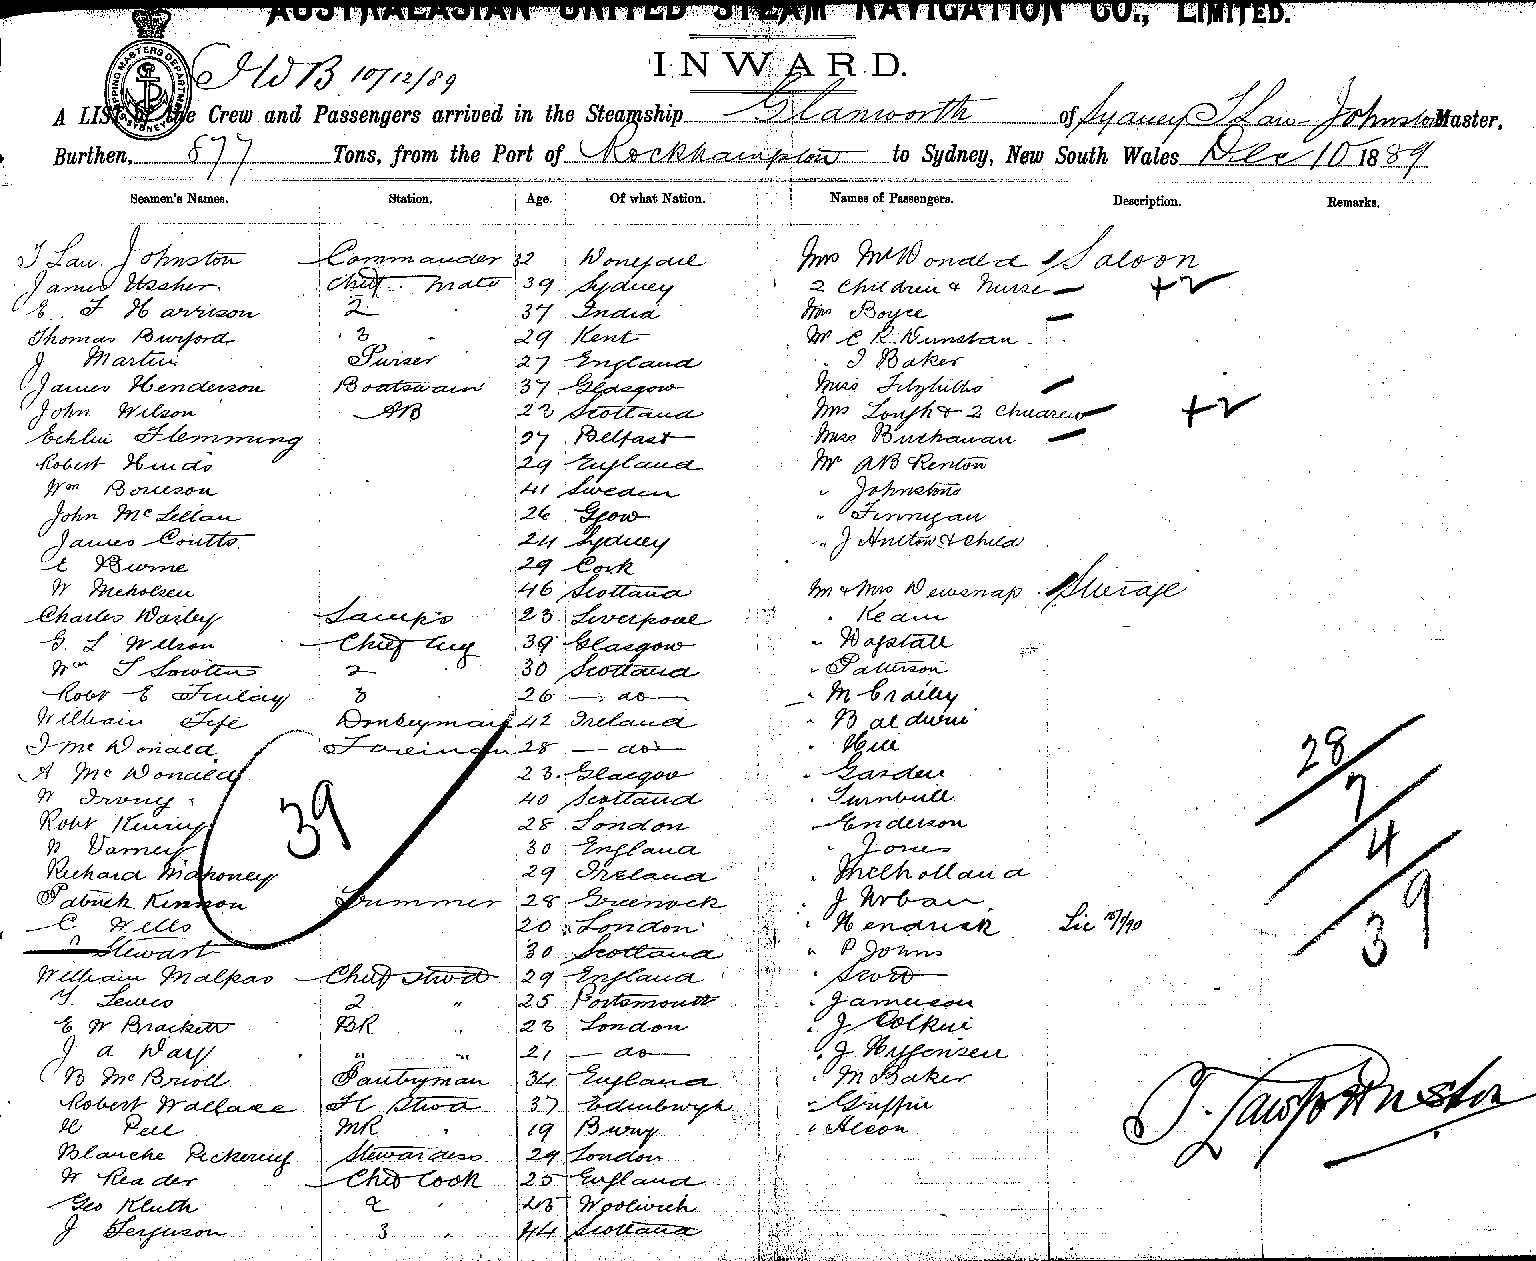 AUSTRALASIAN UNITED STEAM NAVIGATION CO., LIMITED.
INWARD.
SHIPPING MASTERS DEPARTMENT SYDNEY
JWB 10/12/89
A LIST of the Crew and Passengers arrived in the Steamship Glanworth of Sydney T Law Johnston Master,
Burthen, 877 Tons, from the Port of Rockhampton to Sydney, New South Wales Dec 10 1889
Seamen's Names. Station. Age. Of what Nation. Names of Passengers. Description. Remarks.
T Law Johnston Commander 32 Donegal Mrs McDonald Saloon
James Ussher Chief Mate 39 Sydney 2 Children & Nurse +2
E. F Harrison 2 37 India Mrs Boyce
Thomas Burford 3 29 Kent Mr C R Dunstan
J Martin Purser 27 England " T Baker
James Henderson Boatswain 37 Glasgow Miss Fitzgibbs
John Wilson AB 23 Scotland Mrs Lough & 2 Children +2
Echlin Flemming 27 Belfast Miss Buchanan
Robert Hinds 29 England Mr AB Renton
Wm 41 Sweden " Johnstone
John McLellan 26 Gow " Finnigan
James Coutts 24 Sydney " J & Child
E Burne 29 Cork
W Nicholson 46 Scotland Mr & Mrs Newsnap Steerage
Charles Warley Lamps 23 Liverpool " Keam
G. L Wilson Chief Eng 39 Glasgow " Wagstall
Wm T 2 30 Scotland " Patterson
Robt E Finlay 3 26 — do — " McCrailey
William Fife Donkeyman 42 Ireland " Balduini
J McDonald Fireman 28 — do — " Hill
A McDonald 23 Glasgow " Garden
W Irving 40 Scotland " Turnbull
Robt 28 London " Enderson
W Varney 30 England " Jones
Richard Mahoney 29 Ireland " Mulholland
Patrick Kinnon Trimmer 28 Greenock " J Urban
C Wells 20 London " Hendrick Lic
Stewart 30 Scotland " P Johns
William Malpas Chief Stwd 29 England " Scott
Lewis 2 " 25 Portsmouth " Jamieson
E W Brackett BR " 23 London " J
J A Way " " 21 — do — " J
B McBriod Pantryman 34 England " M Baker
Robert Wallace FC Stwd 37 Edinburgh " Griffin
H Pell MR " 19 Bury " Alcon
Blanche Pickering Stewardess 29 London
W Reader Chief Cook 25 England
Geo Kluth 2 " Woolwich
J Ferguson 3 " 44 Scotland
39
28
7
4
39
T. Law Johnston